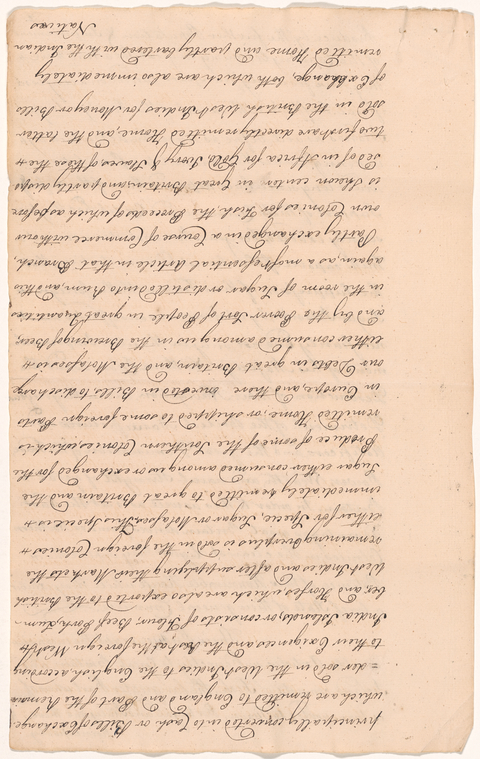 principally converted in to Cash or Bills of Exchange
which are remitted to England and Part of the Remain
=der sold in the West Indies to the English, according
to their Exigences and the Rest, at the foreign West
India Islands, or consists of Flour, Beef, Pork, Lum-
ber, and Horses which are also exported to the British
West Indies and after supplying their Markets the
remaining Overplus is sold in the foreign Colonies
either for Specie, Sugar or Molasses. This Specie is
immediately remitted to great Britain and the
Sugar either consumed among us or exchanged for the
Produce of some of the Northern Colonies, which is
remitted Home, or shipped to some foreign Parts
in Europe, and there invested in Bills to discharge
our Debts in great Britain, and the Molasses is
either consumed among us in the Brewing of Beer,
and by the Poorer Sort of People in great Quantities
in the room of Sugar or distilled into Rum, and this
again, as a most essential Article in that Branch,
Partly exchanged in a Course of Commerce with our
own Colonies for Fish, the Proceeds of which as before
is Shewn center in Great Britain and partly dispo
sed of in Africa for Gold Ivory & Slaves, of these the
two first are directly remitted Home, and the latter
sold in the British West Indies for Money or Bills
of Exchange, both which are also immediately
remitted Home and partly bartered with the Indian
Natives